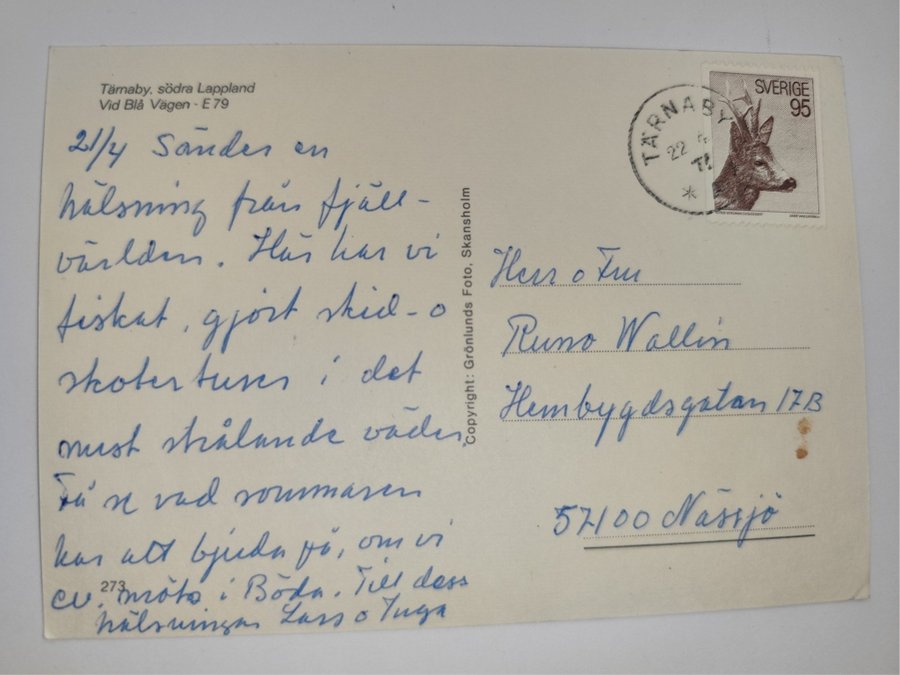 Tärnaby, södra Lappland
Vid Blå Vägen - E 79
21/4 Sänder en
hälsning från fjäll-
världen. Här har vi
fiskat, gjort skid- o
skoterturer i det
mest strålande väder.
Få se vad sommaren
har att bjuda på, om vi
ev. möts i Böda. Till dess
hälsningar Lars o Inga
273
Copyright: Grönlunds Foto, Skansholm
SVERIGE
95
TÄRNABY
22 4
Herr o Fru
Runo Wallin
Hembygdsgatan 17B
57100 Nässjö